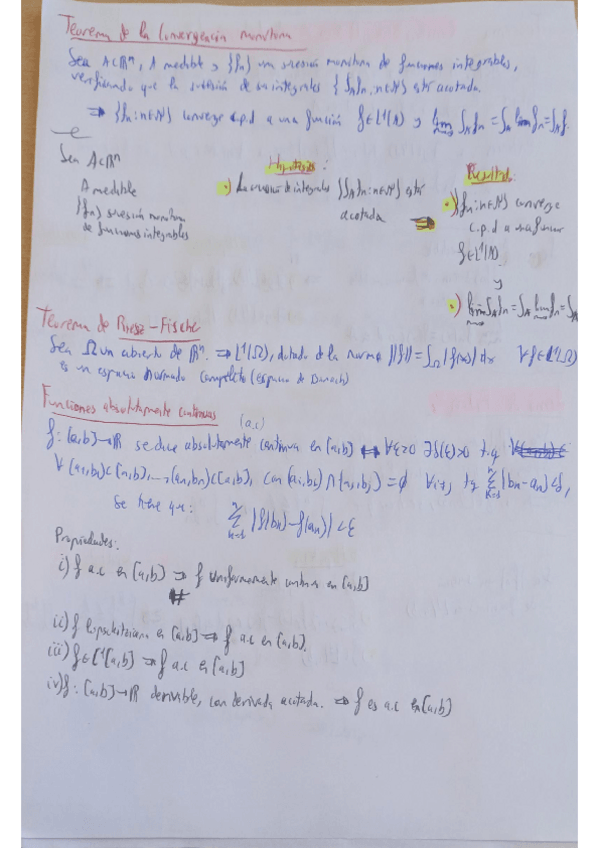 Teorema de la Convergencia monótona
Sea A⊂ℝⁿ, A medible y {fn} una sucesión monótona de funciones integrables,
verificando que la sucesión de sus integrales {∫_A fn : n∈ℕ} está acotada.
⇒ {fn : n∈ℕ} converge c.p.d a una función f∈L¹(A) y lim ∫_A fn = ∫_A lim fn = ∫_A f.
Sea A⊂ℝⁿ
A medible
{fn} sucesión monótona
de funciones integrables
Hipótesis:
•) La sucesión de integrales {∫_A fn : n∈ℕ} está
acotada
⇒
•) {fn : n∈ℕ} converge
c.p.d a una función
f∈L¹(A)
y
•) lim ∫_A fn = ∫_A lim fn = ∫_A
Teorema de Riesz-Fischer
Sea Ω un abierto de ℝⁿ. ⇒ L¹(Ω), dotado de la norma ||f|| = ∫_Ω |f(x)| dx ∀f∈L¹(Ω)
es un espacio normado completo (espacio de Banach)
Funciones absolutamente continuas (a.c)
f: [a,b]→ℝ se dice absolutamente continua en [a,b] ⟺ ∀ε>0 ∃δ(ε)>0 t.q
∀ (a1,b1)⊂[a,b],...,(an,bn)⊂[a,b], con (ai,bi)∩(aj,bj)=∅ ∀i≠j t.q Σ_{k=1}^{n} |bn-an|<δ,
se tiene que: Σ_{k=1}^{n} |f(bn)-f(an)|<ε
Propiedades:
i) f a.c en [a,b] ⇒ f uniformemente continua en [a,b]
ii) f lipschitziana en [a,b] ⇒ f a.c en [a,b].
iii) f∈C¹[a,b] ⇒ f a.c en [a,b]
iv) f: [a,b]→ℝ derivable, con derivada acotada. ⇒ f es a.c en [a,b]